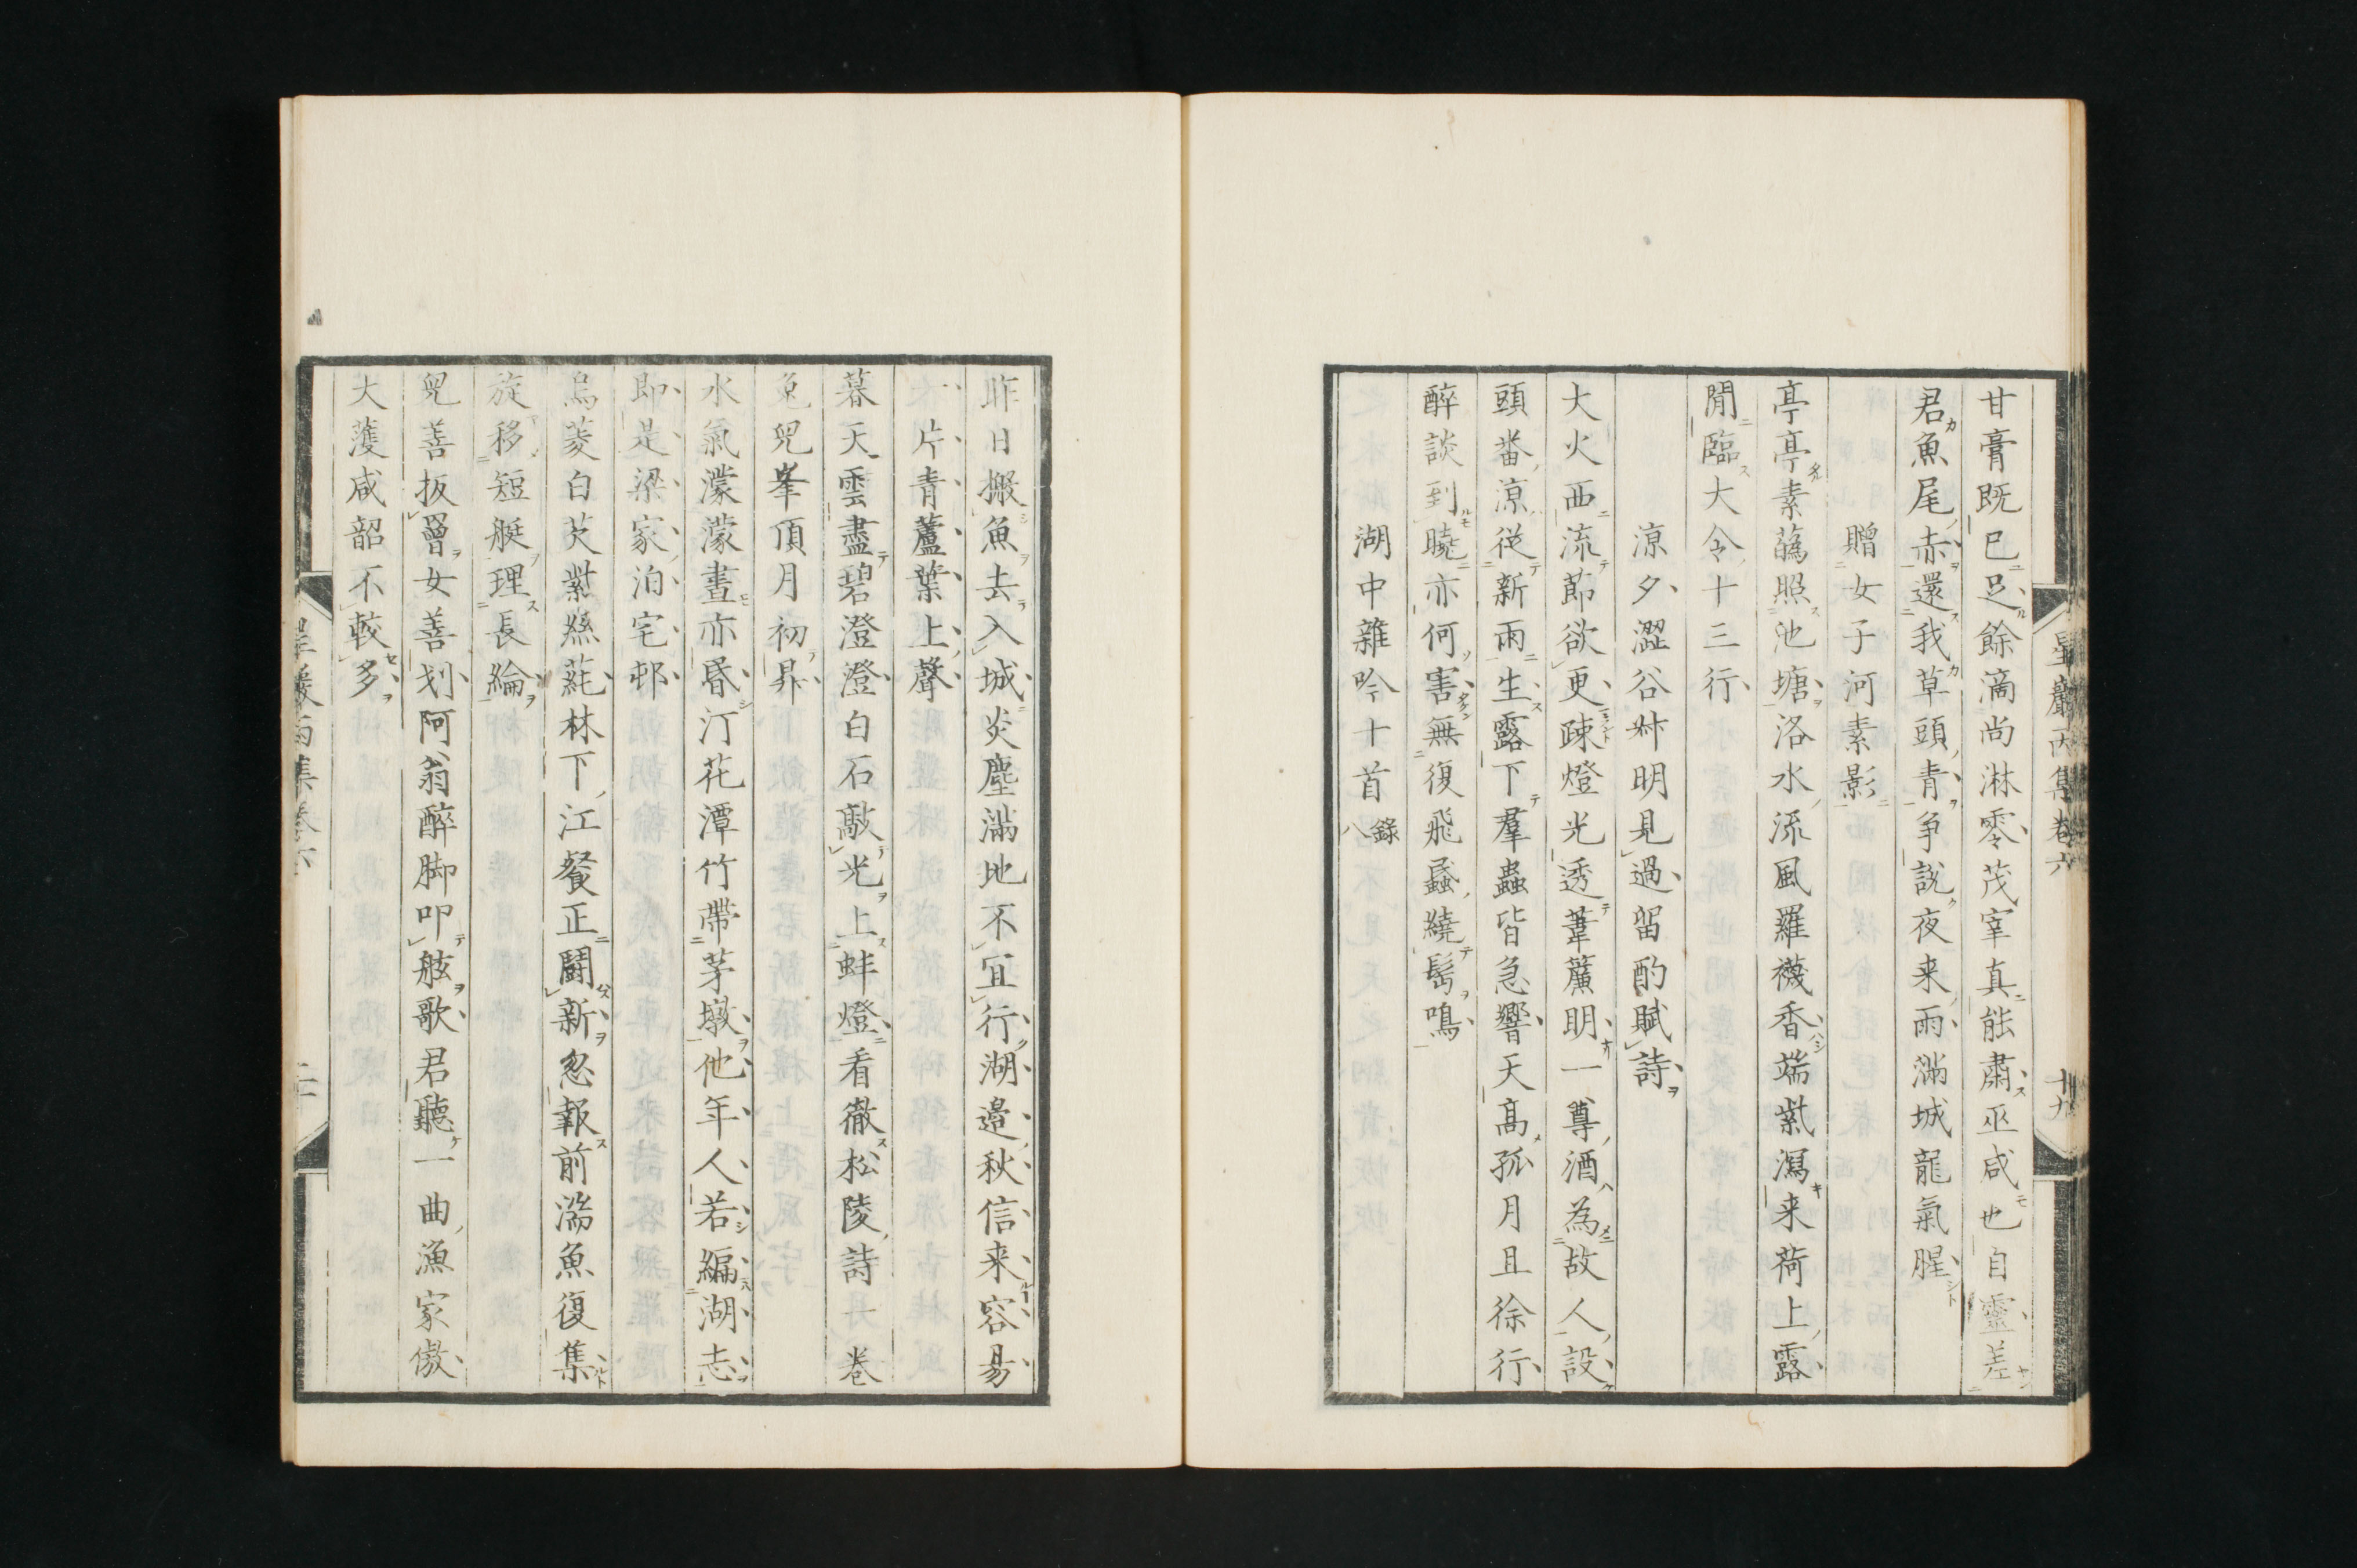 星巖丙集卷六
十九
甘膏既已足餘滴尚淋零茂宰真能肅巫咸也自靈差
君魚尾赤還我草頭青争說夜来雨滿城龍氣腥
贈女子河素影
亭亭素蘤照池塘洛水流風羅襪香端紫瀉来荷上露
閒臨大令十三行
涼夕澀谷艸明見過留酌賦詩
大火西流莭欲更疎燈光透葦簾明一尊酒為故人設
頭番涼從新雨生露下羣蟲皆急響天高孤月且徐行
醉談到曉亦何害無復飛蟁繞髩鳴
湖中雜吟十首錄八
昨日搬魚去入城炎塵滿地不宜行湖邉秋信来容昜
一片青蘆葉上聲
暮天雲盡碧澄澄白石敲光上蚌燈看徹松陵詩一卷
兔兒峯頂月初昇
水氣濛濛晝亦昬汀花潭竹帶茅墩他年人若編湖志
即是梁家泊宅邨
烏菱白芡紫絲蒓林下江餐正鬪新忽報前湍魚復集
旋移短艇理長綸
兒善扳罾女善划阿翁醉脚叩舷歌君聽一曲漁家傲
大濩咸韶不較多